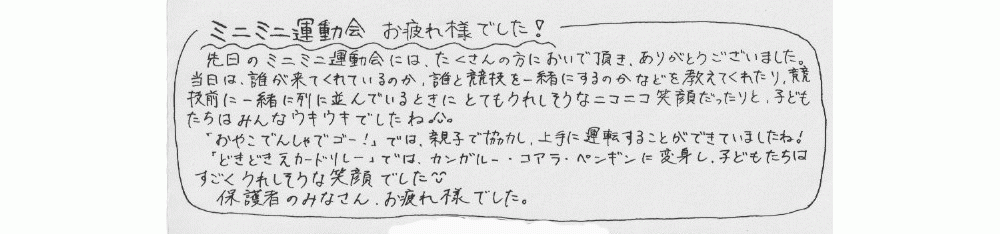 ミニミニ運動会 お疲れ様でした!
先日のミニミニ運動会には、たくさんの方においで頂き、ありがとうございました。
当日は、誰が来てくれているのか、誰と競技を一緒にするのかなどを教えてくれたり、競
技前に一緒に列に並んでいるときにとてもうれしそうなニコニコ笑顔だったりと、子ども
たちはみんなウキウキでしたね♪。
「おやこでんしゃでゴー!」では、親子で協力し、上手に運転することができていましたね!
「どきどきえカードリレー」では、カンガルー・コアラ・ペンギンに変身し、子どもたちは
すごくうれしそうな笑顔でした
保護者のみなさん、お疲れ様でした。